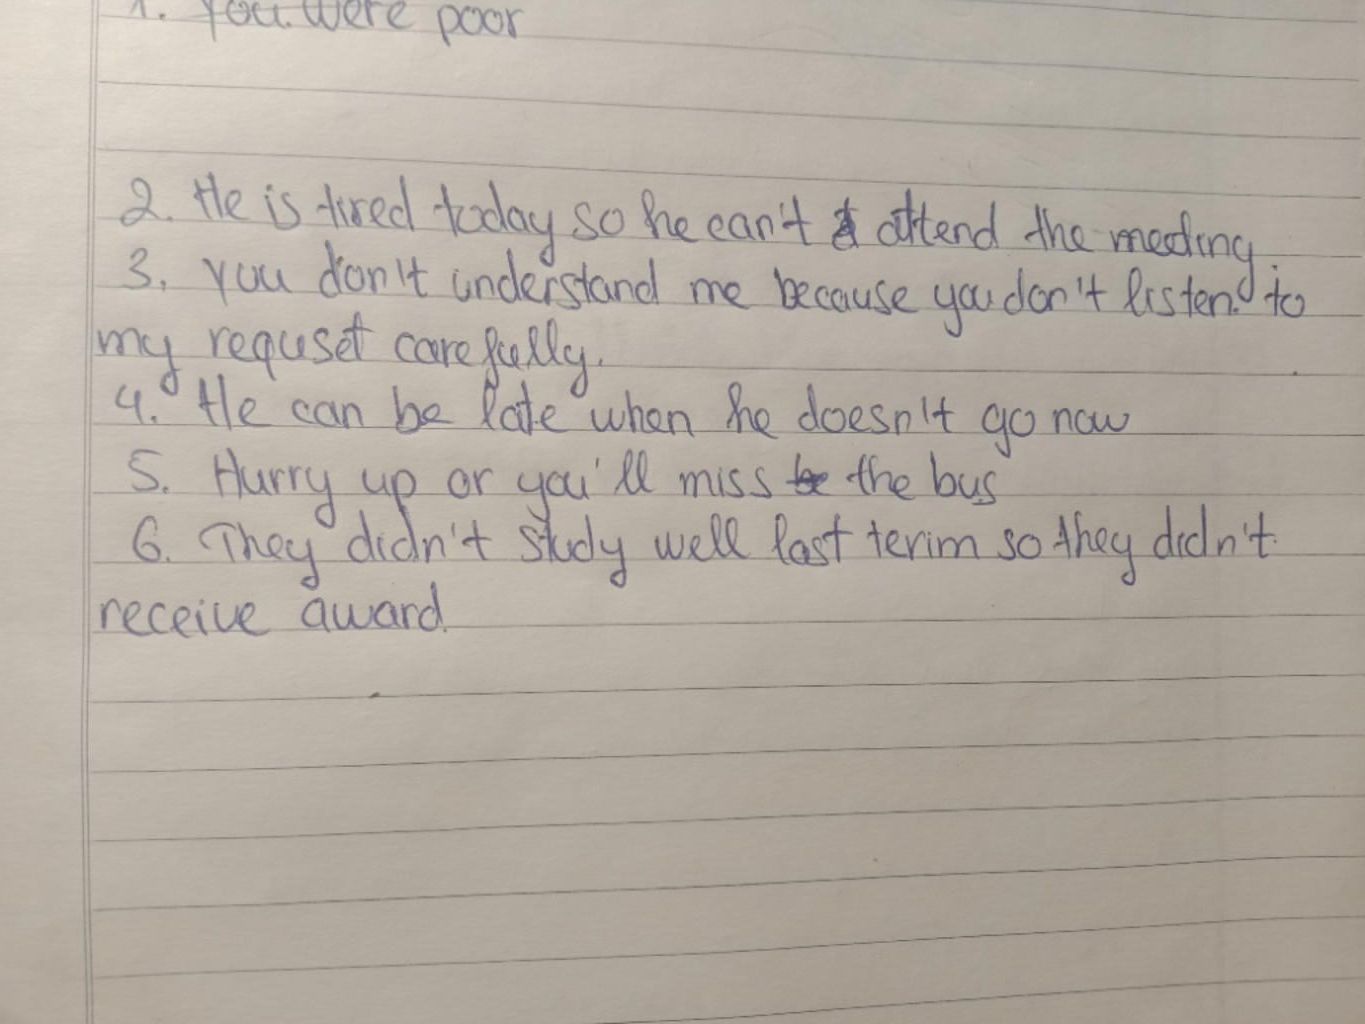 1. You were poor
2. He is tired today so he can't attend the meeting.
3. you don't understand me because you don't listen to
my requset carefully.
4. He can be late when he doesn't go now
5. Hurry up or you'll miss the bus
6. They didn't study well last terim so they didn't
receive award.